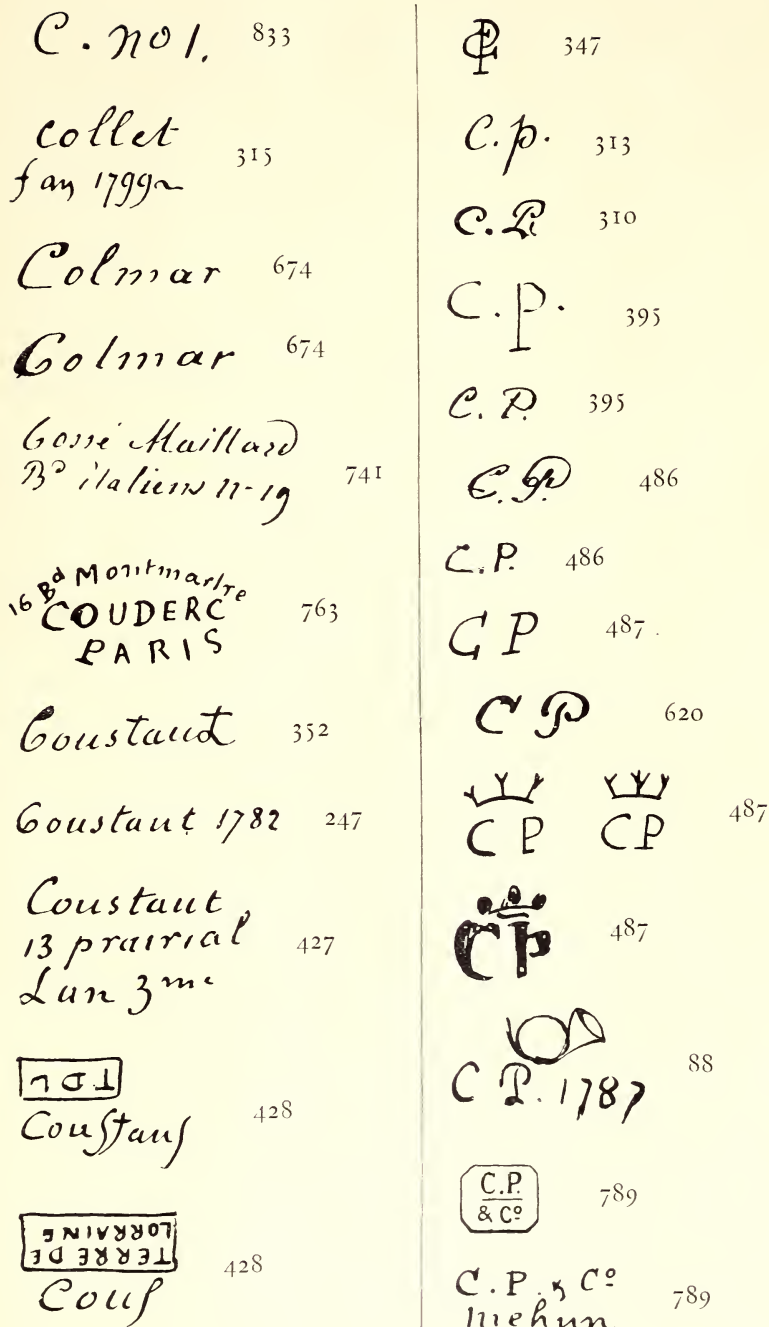 C. no 1. 833
Collet
f an 1799 315
Colmar 674
Colmar 674
Cossé Maillard
Bd italiens 11-19 741
16 Bd Montmartre
COUDERC
PARIS 763
Coustaut 352
Coustaut 1782 247
Coustaut
13 prairial
Lan 3me 427
TDL
Coustans 428
TERRE DE
LORRAINE
Cous 428
CP 347
C.p. 313
C.P. 310
C.P. 395
C.P. 395
C.P. 486
C.P. 486
C P 487
C P 620
C P CP 487
CP 487
C P. 1787 88
C.P.
& Co 789
C.P. & Co
mehun 789